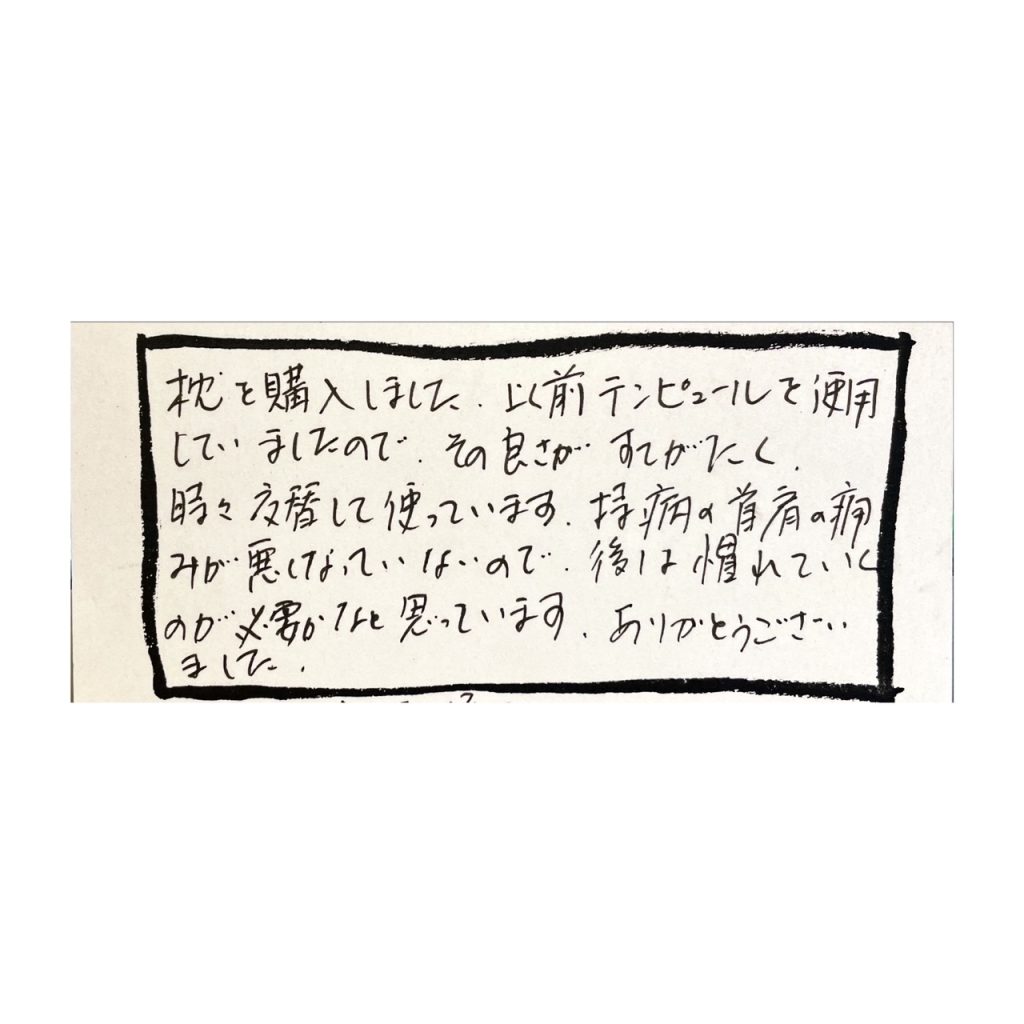 枕を購入しました. 以前テンピュールを使用
していましたので. その良さが すてがたく.
時々交替して使っています. 持病の首肩の痛
みが悪くなっていないので. 後は慣れていく
のが必要かなと思っています. ありがとうござい
ました.